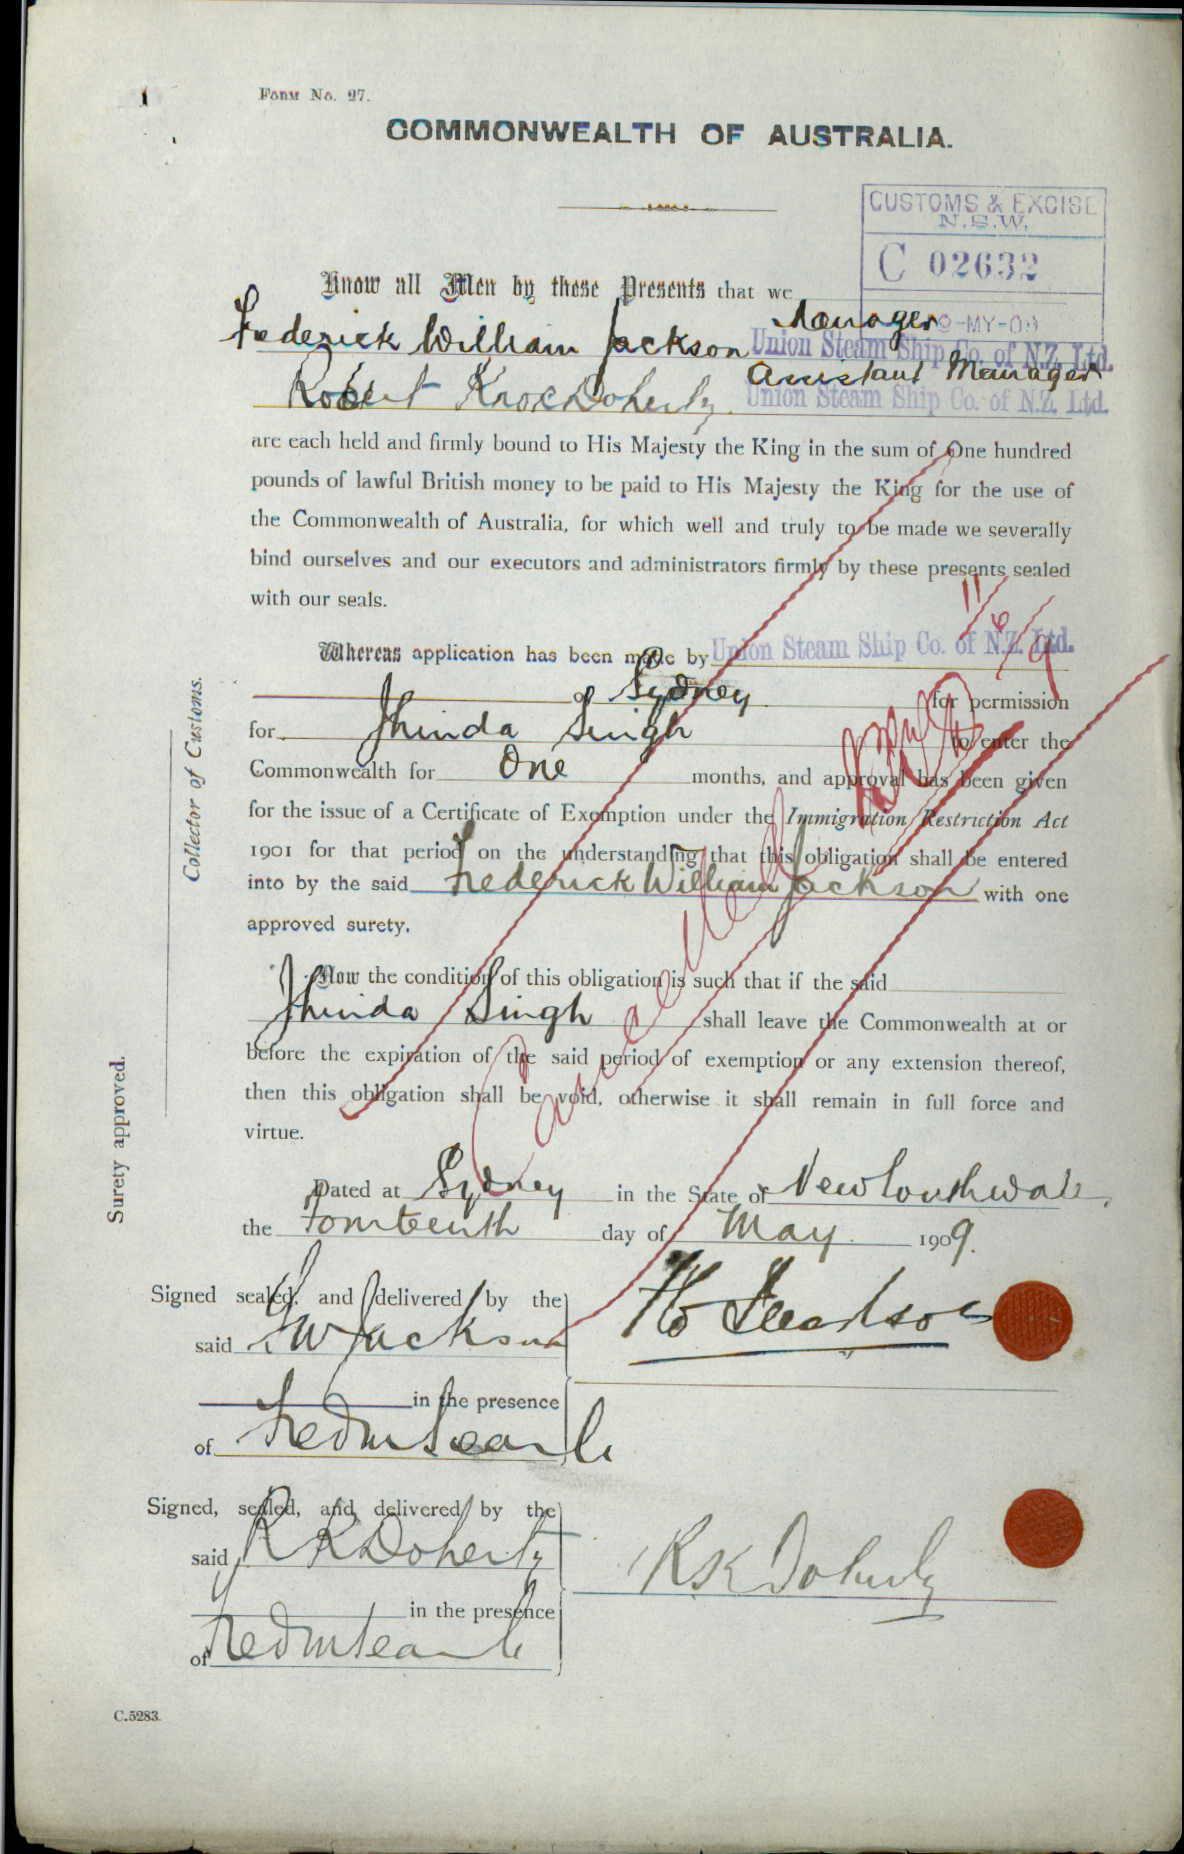 1
Form No. 27.
COMMONWEALTH OF AUSTRALIA.
CUSTOMS & EXCISE
N.S.W.
C 02632
-MY-09
Know all Men by these Presents that we
Manager
Frederick William Jackson Union Steam Ship Co. of N.Z. Ltd.
Assistant Manager
Robert Knox Doherty Union Steam Ship Co. of N.Z. Ltd.
are each held and firmly bound to His Majesty the King in the sum of One hundred
pounds of lawful British money to be paid to His Majesty the King for the use of
the Commonwealth of Australia, for which well and truly to be made we severally
bind ourselves and our executors and administrators firmly by these presents sealed
with our seals.
11/6/9
Whereas application has been made by Union Steam Ship Co. of N.Z. Ltd.
of Sydney for permission
for Jhinda Singh to enter the
Commonwealth for One months, and approval has been given
for the issue of a Certificate of Exemption under the Immigration Restriction Act
1901 for that period on the understanding that this obligation shall be entered
into by the said Frederick William Jackson with one
approved surety.
Now the condition of this obligation is such that if the said
Jhinda Singh shall leave the Commonwealth at or
before the expiration of the said period of exemption or any extension thereof,
then this obligation shall be void, otherwise it shall remain in full force and
virtue.
Cancelled
Dated at Sydney in the State of New South Wales,
the Fourteenth day of May 1909.
Signed sealed, and delivered by the
said F W Jackson
in the presence
of
Signed, sealed, and delivered by the
said R K Doherty
R K Doherty
in the presence
of
Surety approved.
Collector of Customs.
C.5283.